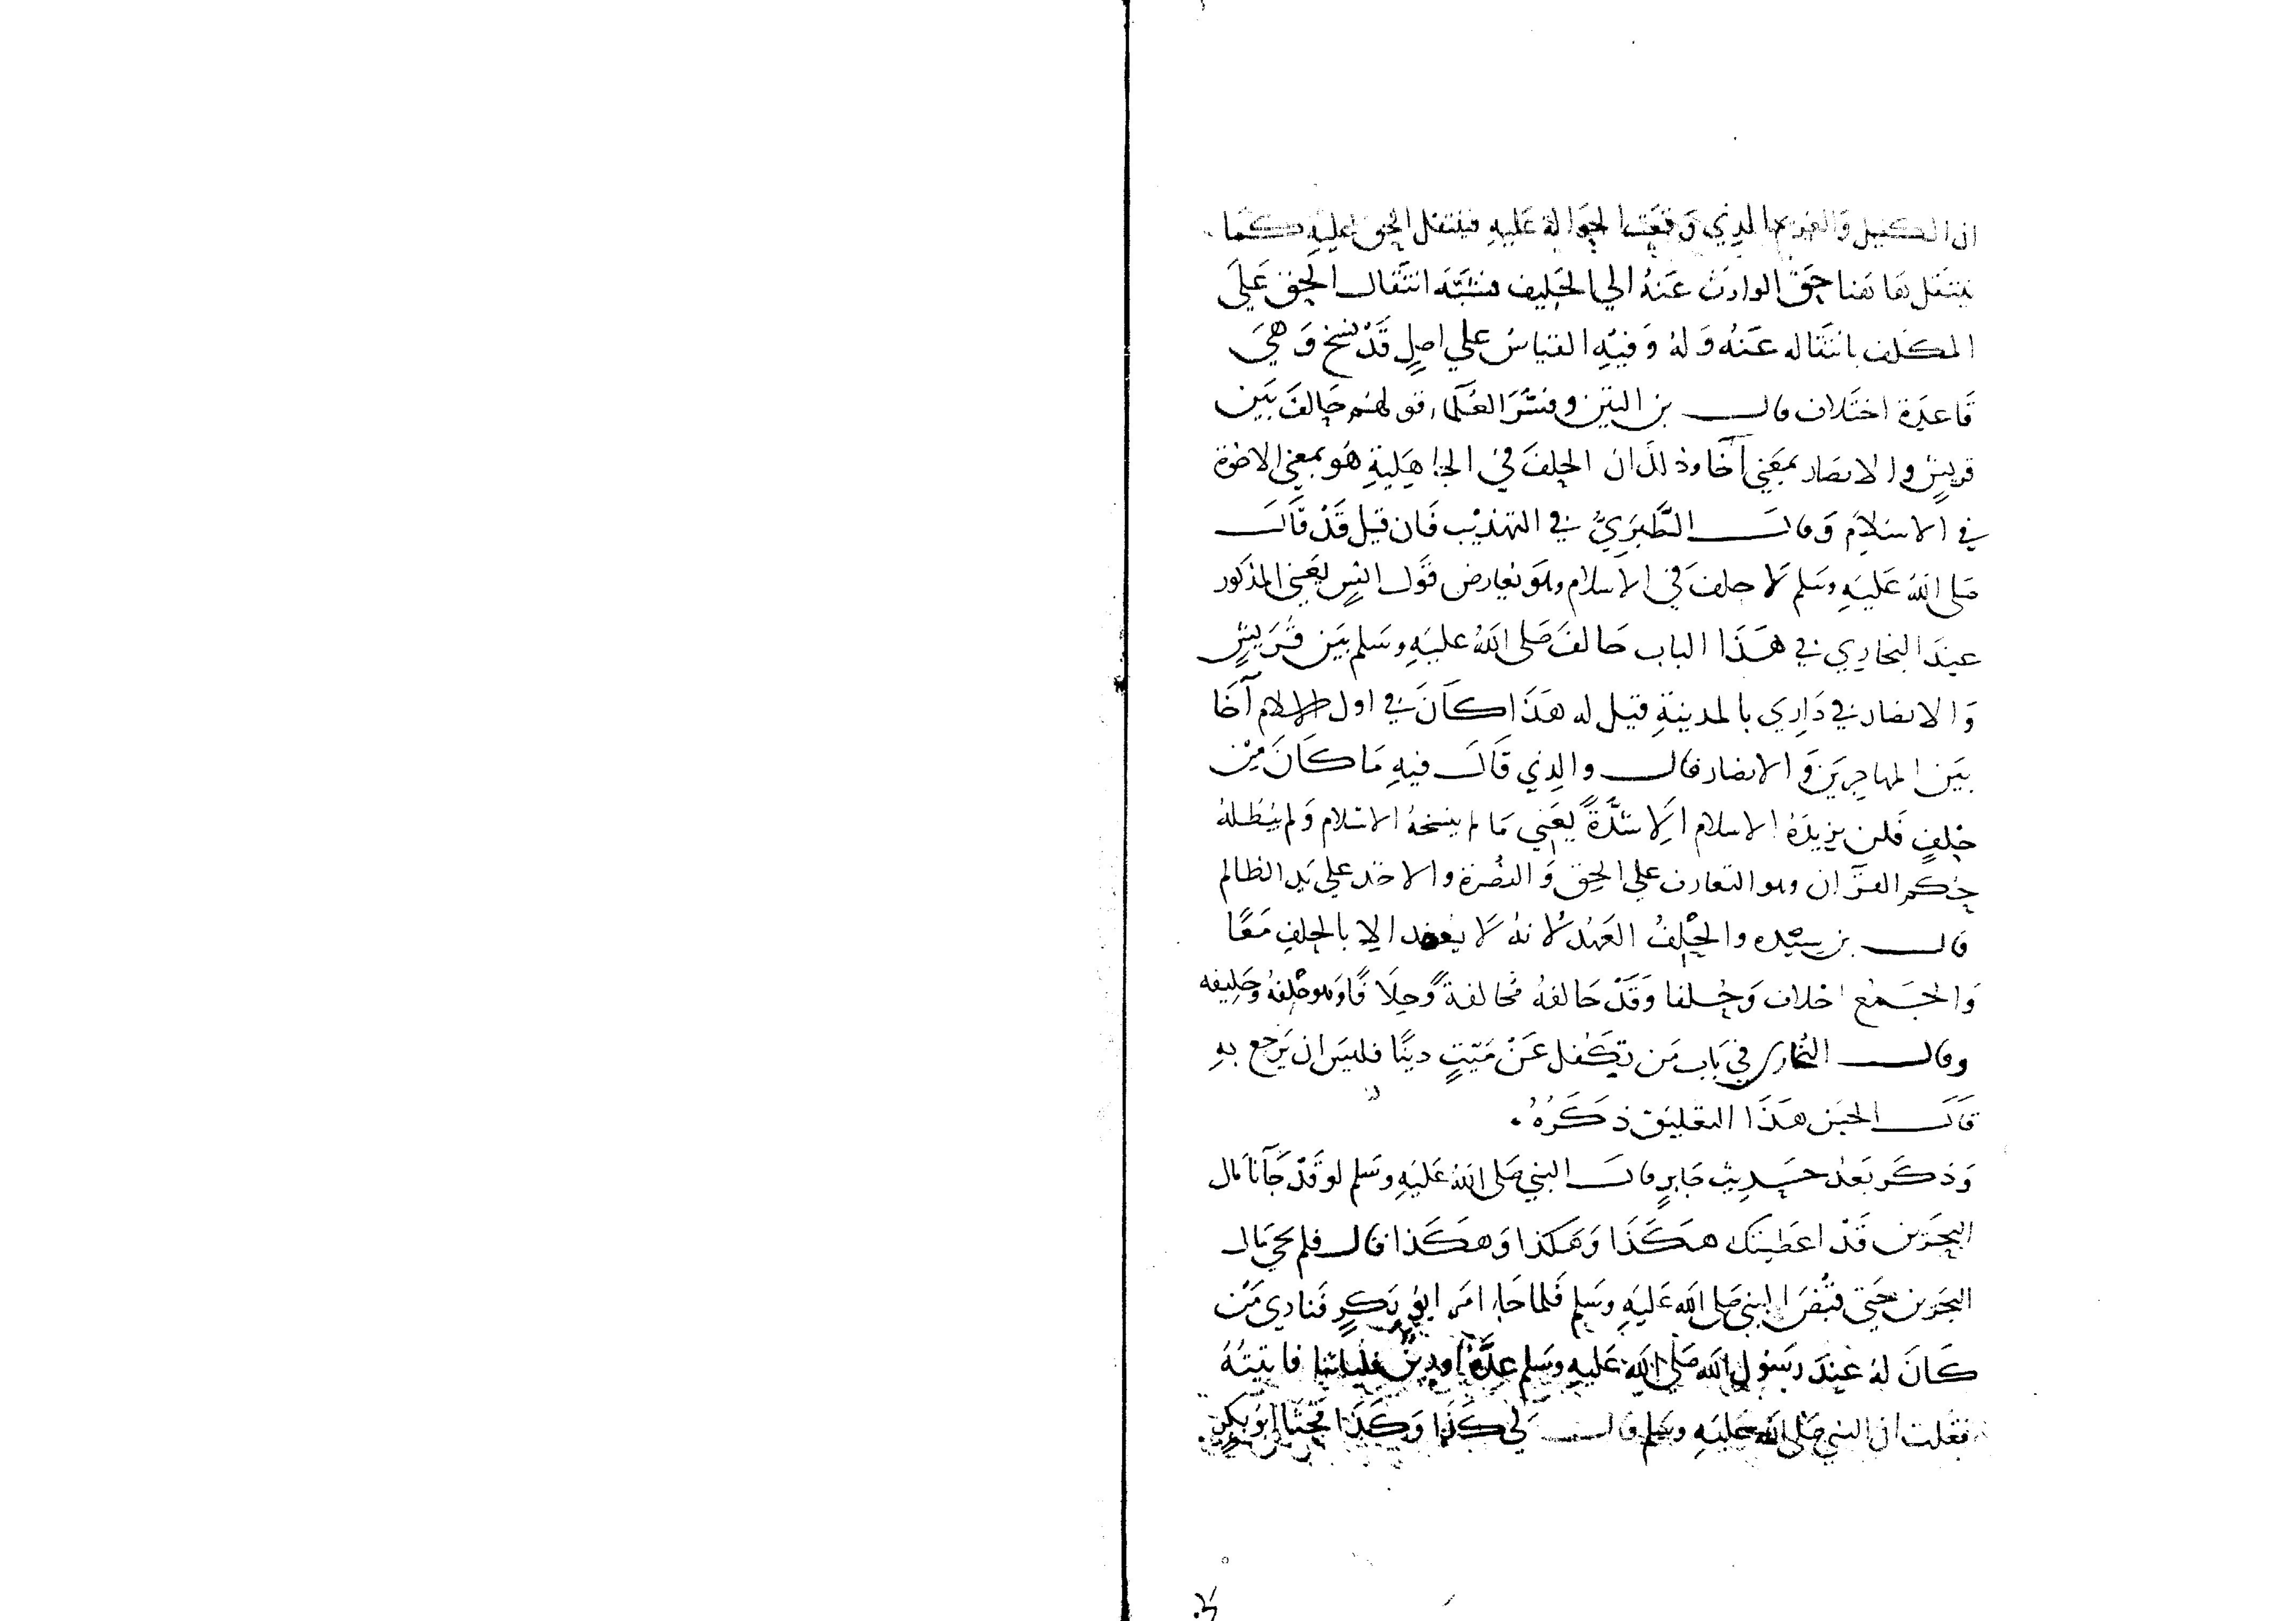 ان الكفيل والغريم الذي وقعت الحوالة عليه فينتقل الحق عليه كما
ينتقل هاهنا حق الوارث عنه الي الحليف فشبه انتقال الحق علي
المكلف بانتقاله عنه وله وفيه القياس علي اصل قد نسخ وهي
قاعدة اختلاف قال بن التين وفسر العلماء قولهم حالف بين
قريش والانصار بمعني آخا وذلك ان الحلف في الجاهلية هو بمعني الاخوة
في الاسلام وقال الطبري في التهذيب فان قيل قد قال
صلى الله عليه وسلم لا حلف في الاسلام وهو يعارض قول انس يعني المذكور
عند البخاري في هذا الباب حالف صلى الله عليه وسلم بين قريش
والانصار في داري بالمدينة قيل له هذا كان في اول الاسلام آخا
بين المهاجرين والانصار قال والذي قال فيه ما كان من
حلف فلن يزيده الاسلام الا شدة يعني ما لم ينسخه الاسلام ولم يبطله
حكم القرآن وهو التعاون علي الحق والنصرة والاخذ علي يد الظالم
قال بن سيده والحلف العهد لانه لا يعقد الا بالحلف معا
والجمع احلاف وحلفا وقد حالفه محالفة وحلافا وهو حلفه وحليفه
وقال البخاري في باب من تكفل عن ميت دينا فليس ان يرجع به
قال الحسن هذا التعليق ذكره
وذكر بعد حديث جابر قال النبي صلى الله عليه وسلم لو قد جآنا مال
البحرين قد اعطيتك هكذا وهكذا وهكذا قال فلم يجي مال
البحرين حتي قبض النبي صلى الله عليه وسلم فلما جاء امر ابو بكر فنادي من
كان له عند رسول الله صلي الله عليه وسلم عدة او دين فلياتنا فاتيته
فقلت ان النبي صلى الله عليه وسلم قال لي كذا وكذا فحثا ابو بكر